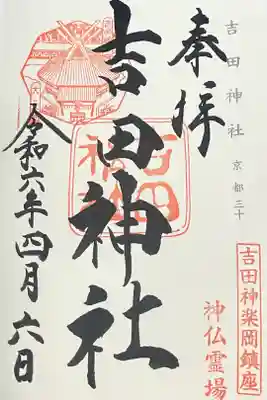 吉田神社 京都三十
奉拝
吉田神社
令和六年四月六日
吉田神楽岡鎮座
神仏霊場